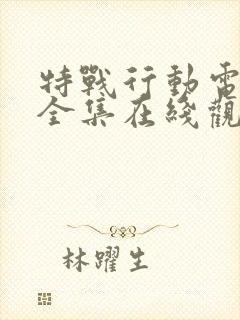 特戰行動電
全集在綫觀
林躍生